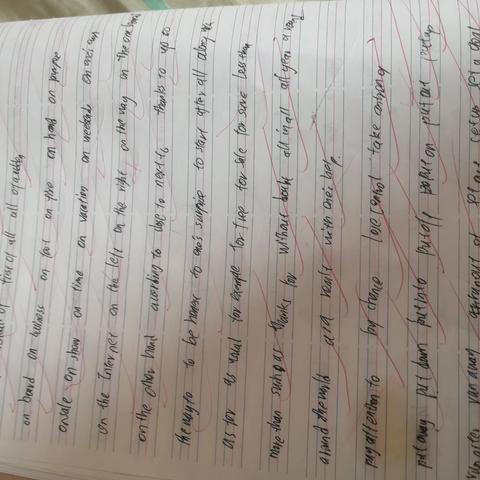 instead of tired of all all of a sudden
on board on business on foot on fire on hand on purpose
on sale on show on time on vacation on weekends on one's own
on the Internet on the left on the right on the way on the one hand
on the other hand according to close to next to thanks to up to
the way to to be honest to one's surprise to start after all along with
as for as usual for example for free for sale for sure less than
more than such as thanks for without doubt all in all all year
around the world as a result with one's help
pay attention to by chance lose control take
put away put down put into put off put on put out put up
run after run away run out of set up set a